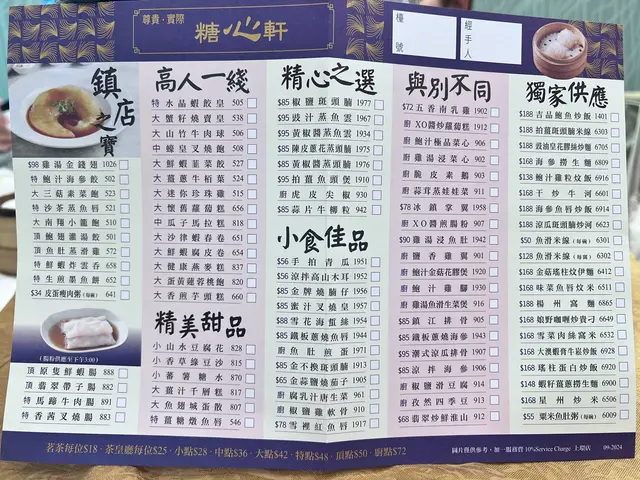 尊貴·實際
糖心軒
檯號
經手人
鎮店之寶
$98 雞湯金錢翅 1026
特 鮑汁海參餃 502
大 三菇素菜飽 523
特 沙茶蒸魚唇 521
大 南翔小籠飽 510
頂 鮑翅灌湯餃 501
頂 魚肚蒸滑雞 572
特 鮮蝦炸雲吞 658
特 生煎墨魚餅 652
$34 皮蛋瘦肉粥(每碗) 641
(腸粉供應至下午3:00)
頂 原隻鮮蝦腸 888
頂 翡翠帶子腸 882
特 馬蹄牛肉腸 891
特 香茜叉燒腸 883
高人一綫
特 水晶蝦餃皇 505
大 蟹籽燒賣皇 538
大 山竹牛肉球 506
中 蠔皇叉燒飽 508
大 鮮蝦韮菜餃 527
大 薑蔥牛栢葉 524
大 迷你珍珠雞 515
大 懷舊蘿蔔糕 656
中 瓜子馬拉糕 818
大 沙律蝦春卷 651
大 鮮蝦腐皮卷 654
大 健康燕麥糕 837
大 蛋黃蓮蓉桃飽 820
大 香煎芋頭糕 660
精美甜品
小 山水豆腐花 828
小 香草綠豆沙 815
小 蕃薯糖水 870
大 薑汁千層糕 817
大 魚翅城蛋散 807
特 薑糖燉魚唇 546
精心之選
$85 椒鹽斑頭腩 1977
$95 豉汁蒸魚雲 1967
$95 黃椒醬蒸魚雲 1934
$85 陳皮蔥花蒸頭腩 1975
$85 黃椒醬蒸頭腩 1976
$95 拍薑魚頭煲 1910
廚 虎皮尖椒 930
$85 蒜片牛柳粒 942
小食佳品
$56 手拍青瓜 1951
$56 涼拌高山木耳 1952
$85 金牌燒腩仔 1956
$85 蜜汁叉燒皇 1957
$88 雪花海蜇絲 1954
$85 鐵板蔥燒魚唇 1944
廚 魚肚煎蛋 971
$85 金不換斑頭腩 1953
$65 金蒜鹽燒茄子 1905
廚 腐乳汁唐生菜 961
廚 椒鹽雞軟骨 910
$78 雪裡紅魚唇 1917
與別不同
$72 五香南乳雞 1902
廚 XO醬炒蘿蔔糕 1912
廚 鮑汁極品菜心 906
廚 雞湯浸菜心 902
廚 脆皮素鵝 903
廚 蒜茸蒸娃娃菜 911
$78 冰鎮掌翼 1958
廚 XO醬煎腸粉 907
$90 雞湯浸魚肚 1942
廚 蠔香雞翼 901
廚 鮑汁金菇花膠煲 1920
廚 鮑汁雞腳 1930
廚 雞湯魚滑生菜煲 916
$85 鎮江排骨 905
$85 鐵板蔥燒海參 1943
$95 潮式涼瓜排骨 1907
$85 涼拌海參 1906
廚 椒鹽滑豆腐 914
廚 孜然四季豆 913
$68 翡翠炒鮮淮山 912
獨家供應
$188 吉品鮑魚炒飯 1401
$188 拍薑斑頭腩米線 6303
$188 豉油皇花膠絲炒麵 6705
$168 海參撈生麵 6809
$138 鮑汁雞粒炆飯 6916
$168 干炒牛河 6601
$188 海參魚唇炒飯 6914
$188 涼瓜斑頭腩炒河 6623
$50 魚滑米線(每碗) 6301
$128 魚滑米線(每窩) 6302
$168 金菇瑤柱炆伊麵 6412
$168 味菜魚唇炆米 6511
$188 楊州窩麵 6865
$168 娘野咖喱炒貴刁 6649
$168 雪菜肉絲窩米 6532
$168 大澳蝦膏牛崧炒飯 6928
$168 瑤柱蛋白炒飯 6920
$148 蝦籽薑蔥撈生麵 6900
$168 星州炒米 6506
$55 粟米魚肚粥(每碗) 6009
茗茶每位$18·茶皇廳每位$25·小點$28·中點$36·大點$42·特點$48·頂點$50·廚點$72
圖片僅供參考,加一服務費 10%Service Charge 上環店 09-2024